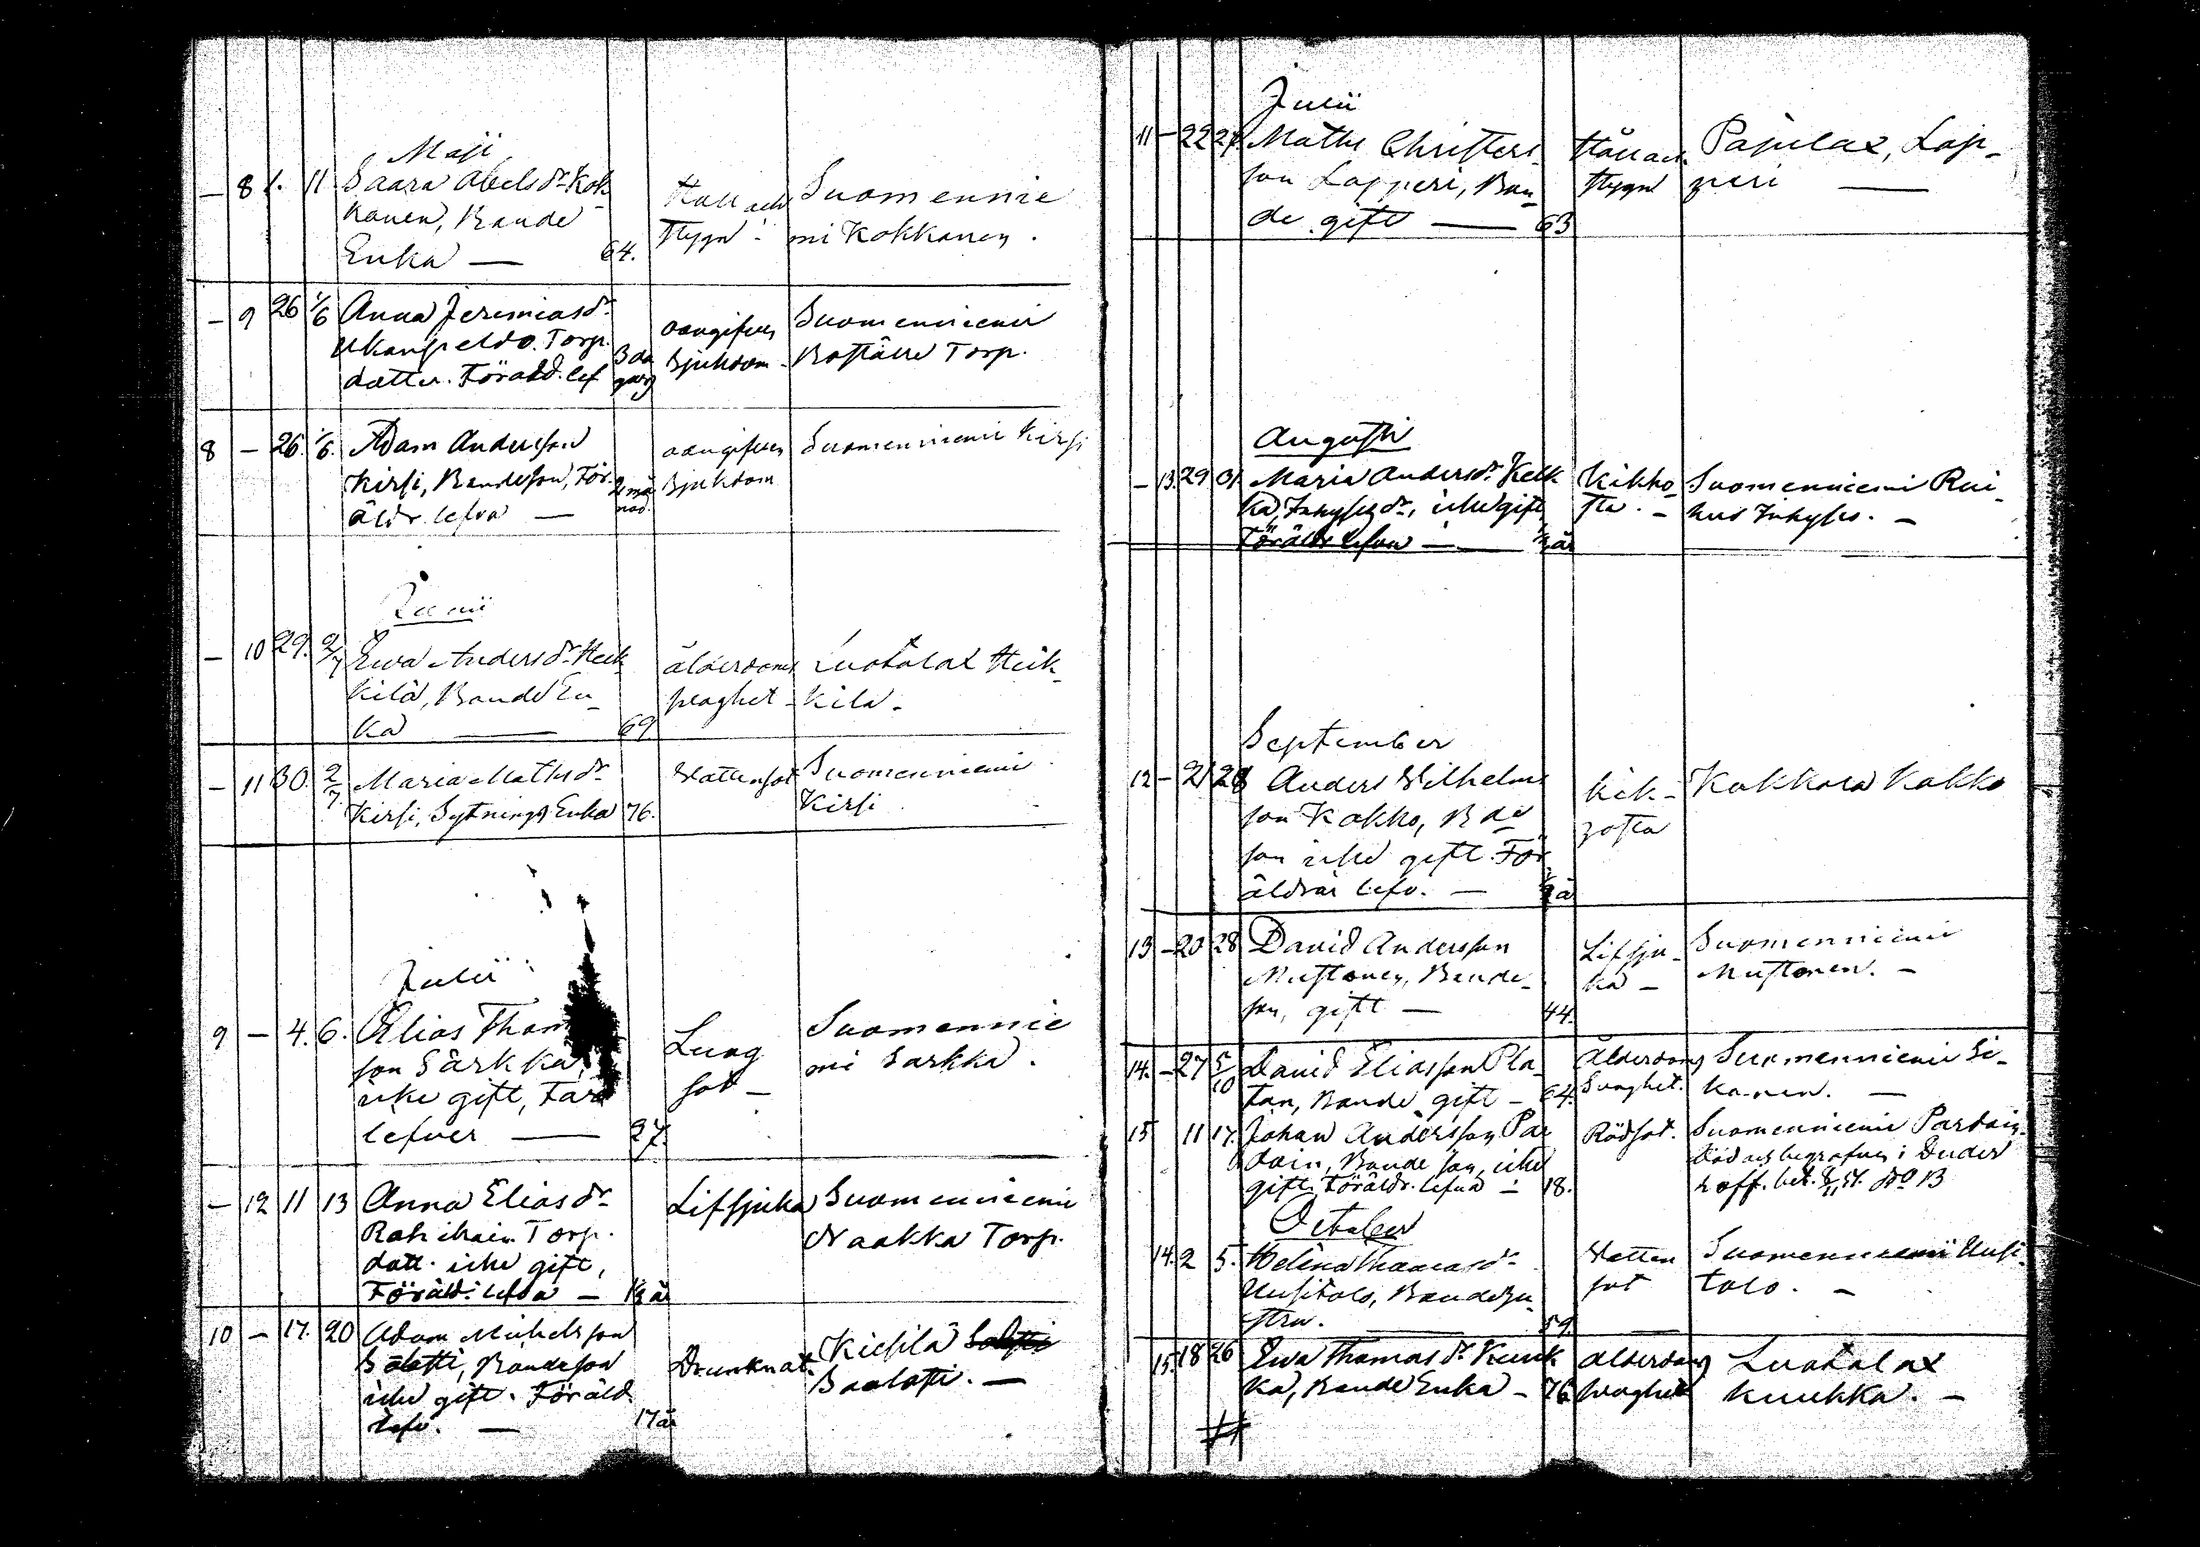 Maji
– 8 1. 11 Saara Abels dr Kok-
kanen, Bonde
Enka — 64.
Håll och
Stygn -
Suomennie
mi Kokkanen.
– 9 26 1/6 Anna Jeremias dr
Torp.
dotter. Föräld. lef 3 da
gar
oangifven
Sjukdom -
Suomenniemi
Boställe Torp.
8 – 26. 1/6. Adam Andersson
Kirsi, Bondeson, För-
äldr. lefva — 2 må
nad.
oangifven
Sjukdom
Suomenniemi Kirsi
Junii
– 10 29. 2/7 Ewa Anders dr Heik
kilä, Bonde En-
ka — 69
ålderdoms
svaghet -
Luotolax Heik-
kilä -
– 11 30. 2/7. Maria Maths dr
Kirsi, Sytnings Enka 76.
Vattensot
Suomenniemi
Kirsi
Julii
9 – 4. 6. Elias Thom
son Särkkä,
icke gift, Far
lefver — 27.
Lung
sot –
Suomennie
mi Särkkä.
– 12 11 13 Anna Elias dr
Torp.
dott. icke gift,
Föräld. lefva – 1/2 år
Lifsjuka
Suomenniemi
Naakka Torp.
10 – 17. 20 Adam Michelsson
Bondeson
icke gift. Föräld.
lefv. — 17 år
Drunknat.
Kiesilä
—
Julii
11 – 22 27 Maths Christers-
son Lapperi, Bon-
de gift — 63
Håll och
Stygn
Pajulax, Lap-
peri —
Augusti
– 13. 29 31 Maria Anders dr Kek
ka, Inhyses dr, icke gift
Föräldr lefva —
Kikho-
sta. –
Suomenniemi
Inhyses. –
September
12 – 21 28 Anders Wilhelms
son Kokko, Bde
son icke gift. För
äldrar lefv. —
kik-
hosta
Kokkola Kokko
13 – 20 28 David Andersson
Mustonen, Bonde-
son, gift — 44.
Lifsju-
ka –
Suomenniemi
Mustonen. –
14. – 27 5/10 David Eliasson Pla-
tan, Bonde gift – 64.
Ålderdoms
Svaghet.
Suomenniemi Si-
kanen. —
15 11 17. Johan Andersson Par
dain, Bonde son, icke
gift. Föräldr. lefva – 18.
Rödsot.
Suomenniemi Pardain.
död och begrafven i
October
14. 2 5. Helena Thomas dr
Uusitalo, Bonde hu-
stru. — 59.
Vatten
sot
Suomenniemi Uusi-
talo. –
15 18 26 Ewa Thomas dr Kuuk
ka, Bonde Enka – 76
Ålderdoms
svaghet
Luotolax
Kuukka. –